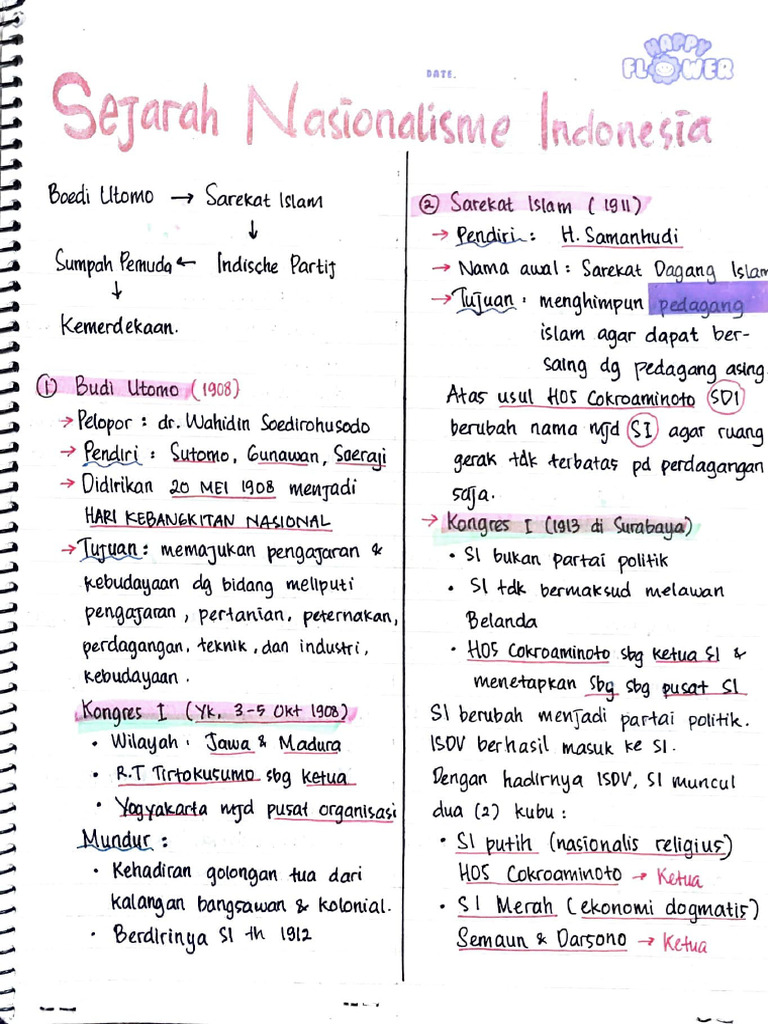 HAPPY
FLOWER
DATE.
Sejarah Nasionalisme Indonesia
Boedi Utomo → Sarekat Islam
↓
Sumpah Pemuda ← Indische Partij
↓
Kemerdekaan.
① Budi Utomo (1908)
→ Pelopor : dr. Wahidin Soedirohusodo
→ Pendiri : Sutomo, Gunawan, Soeraji
→ Didirikan 20 MEI 1908 menjadi
HARI KEBANGKITAN NASIONAL
→ Tujuan : memajukan pengajaran &
kebudayaan dg bidang meliputi
pengajaran, pertanian, peternakan,
perdagangan, teknik, dan industri,
kebudayaan.
Kongres I (Yk, 3-5 Okt 1908)
• Wilayah : Jawa & Madura
• R.T Tirtokusumo sbg ketua
• Yogyakarta mjd pusat organisasi
Mundur :
• Kehadiran golongan tua dari
kalangan bangsawan & kolonial.
• Berdirinya SI th 1912
② Sarekat Islam (1911)
→ Pendiri : H. Samanhudi
→ Nama awal : Sarekat Dagang Islam
→ Tujuan : menghimpun pedagang
islam agar dapat ber-
saing dg pedagang asing.
Atas usul HOS Cokroaminoto SDI
berubah nama mjd SI agar ruang
gerak tdk terbatas pd perdagangan
saja.
→ Kongres I (1913 di Surabaya)
• SI bukan partai politik
• SI tdk bermaksud melawan
Belanda
• HOS Cokroaminoto sbg ketua SI &
menetapkan sbg sbg pusat SI
SI berubah menjadi partai politik.
ISDV berhasil masuk ke SI.
Dengan hadirnya ISDV, SI muncul
dua (2) kubu :
• SI putih (nasionalis religius)
HOS Cokroaminoto → Ketua
• SI Merah (ekonomi dogmatis)
Semaun & Darsono → Ketua